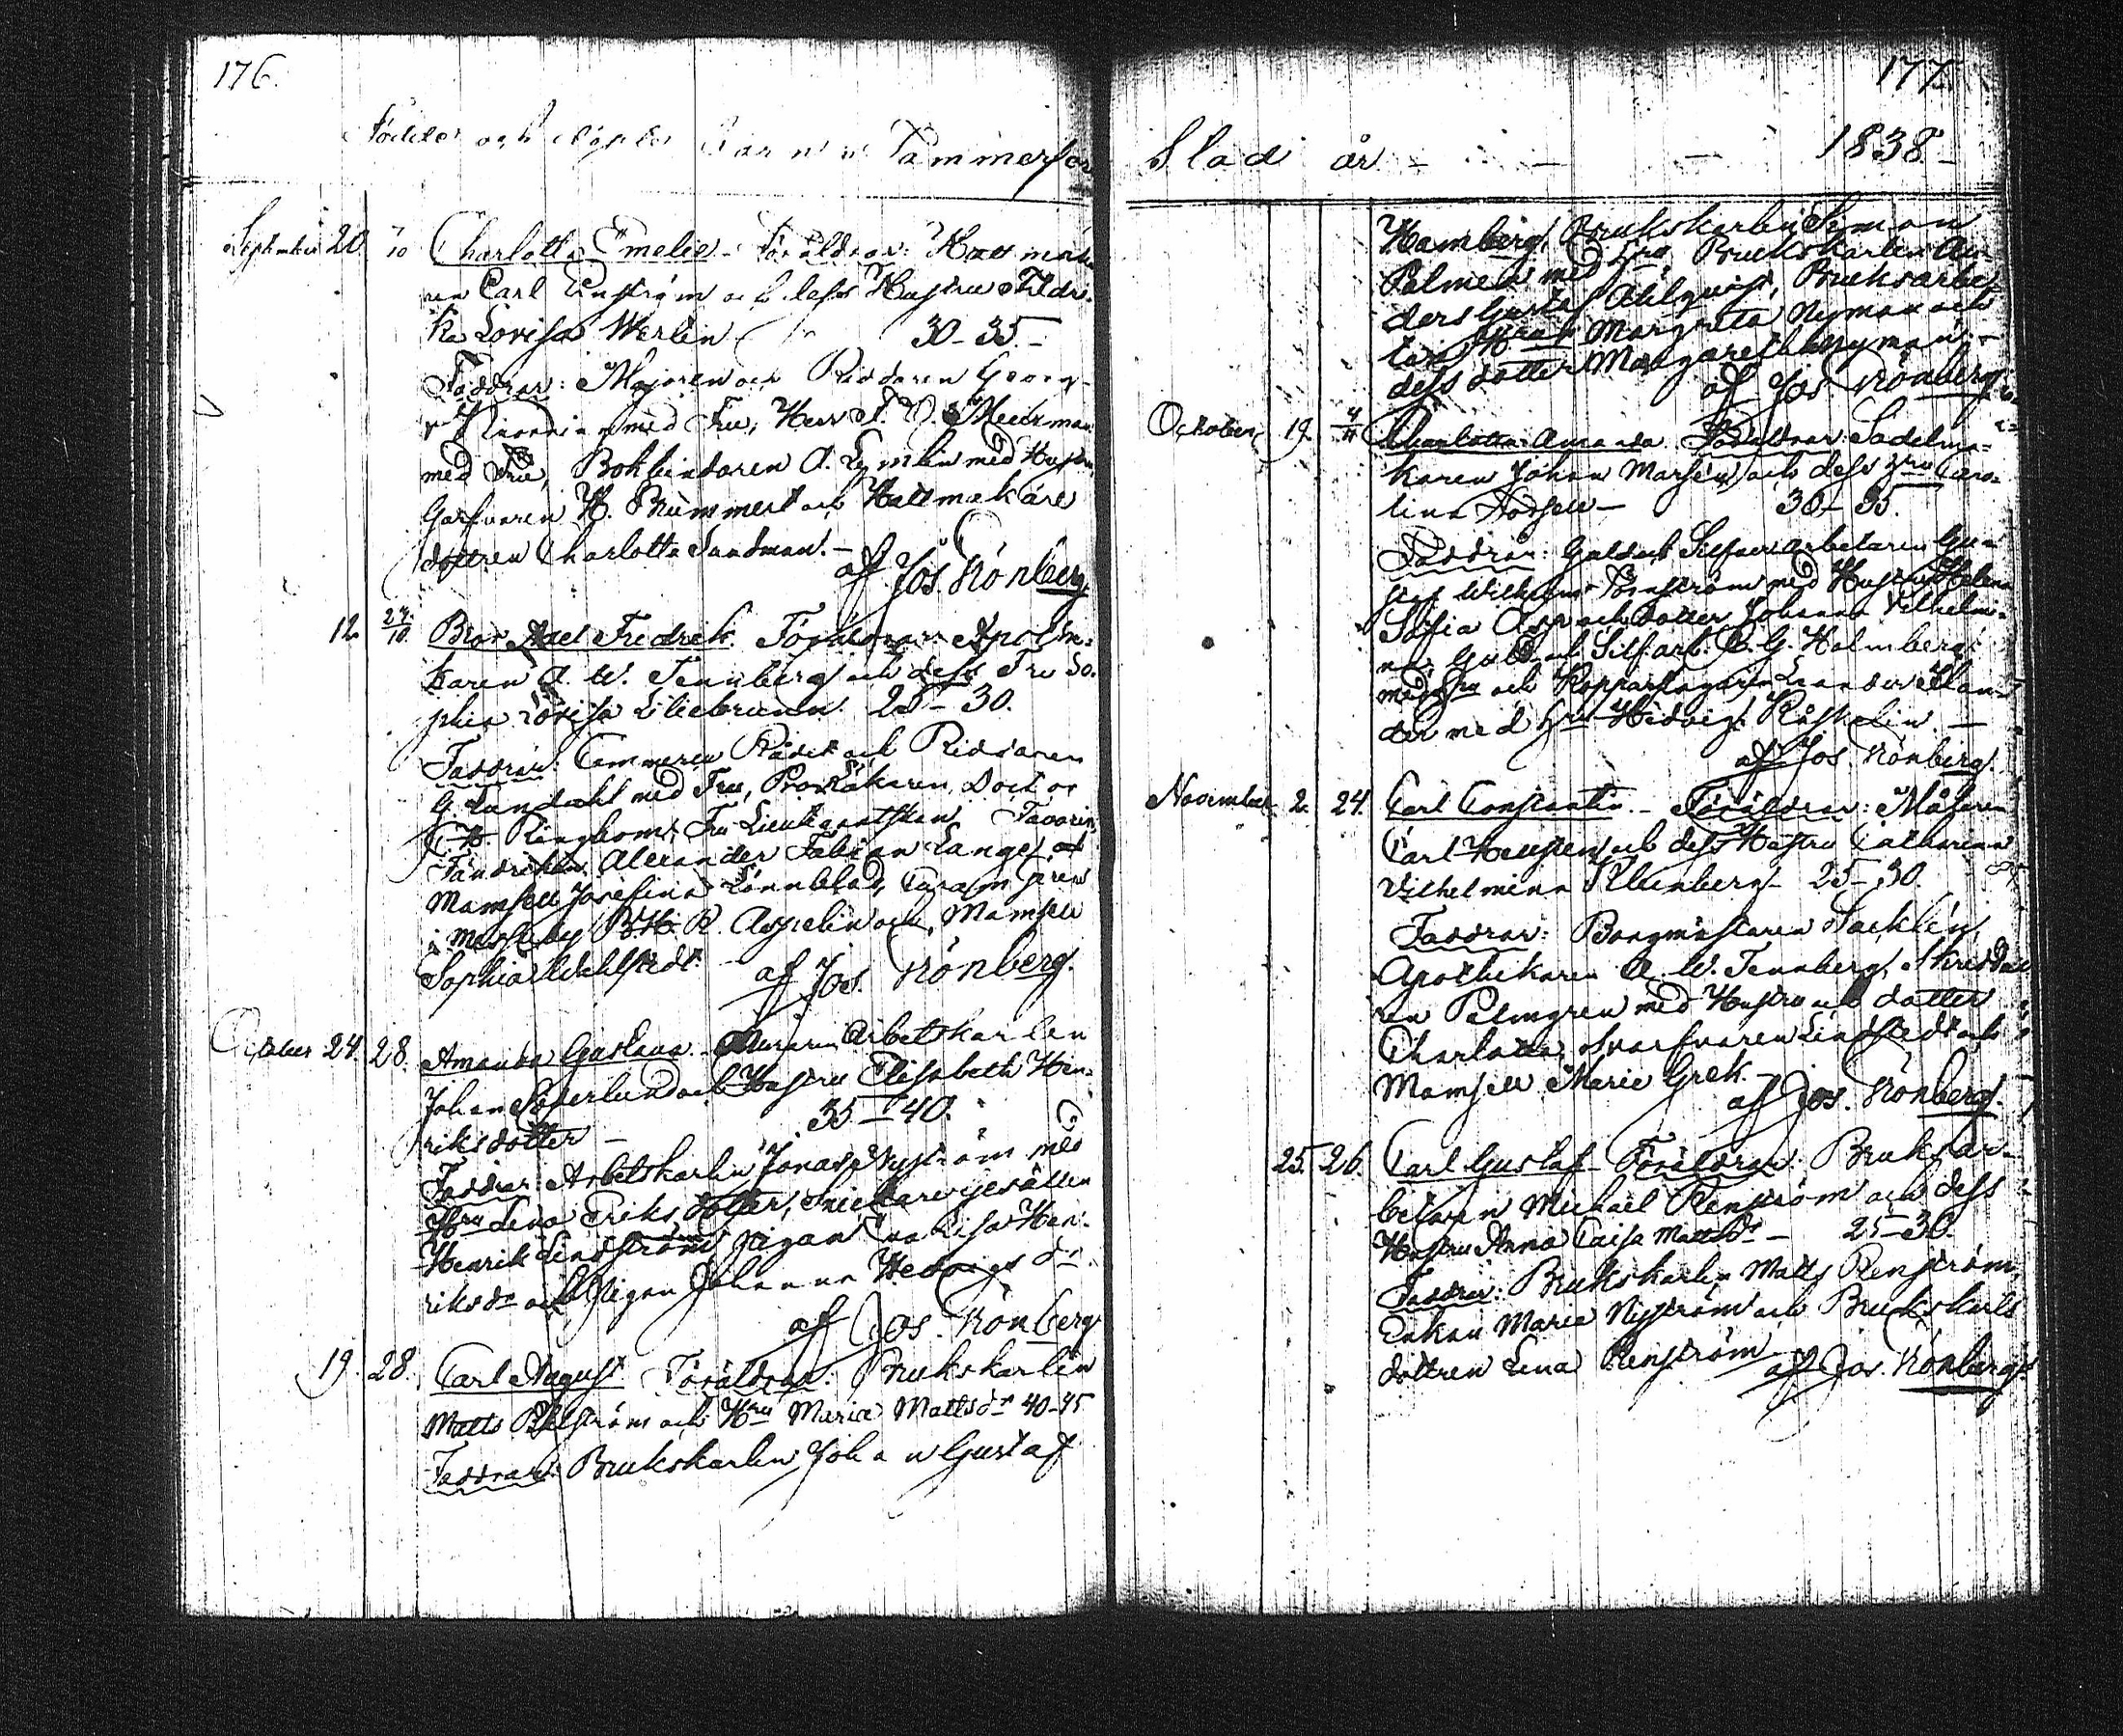 176.
Födde och döpte Barn i Tammerfors
September 20. 7/10 Charlotta Emelie. Föräldrar: Hattmaka-
ren Carl Enström och dess Hustru Fredri-
ka Lovisa Werlin 30-35 -
Faddrar: Majoren och Riddaren Georg
med Fru, Herr F. O. Meurman
med Fru, Bokbindaren A. Lymlin med Hustru
Garfvaren H. Brummert och Hattmakare
dottren Charlotta Sandman. -
af Jos. Grönberg.
12. 24/10. Bror Axel Fredrik. Föräldrar: Apothe-
karen A. W. Tennberg och dess Fru So-
phia Lovisa Liliebrunn. 25-30.
Faddrar: Commerce Rådet och Riddaren
G Lundahl med Fru, Prov.Läkaren Doctor
Ringbom, Fru Lieutenantskan Favorin,
Fändriken Alexander Fabian Lange, och
Mamsell Josefina Lönnblad,
i Messuby R. Aspelin och Mamsell
Sophia Wahlstedt.
af Jos. Grönberg.
October 24. 28. Amanda Gustava. Arbetskarlen
Johan Söderlund och Hustru Elisabeth Hen-
riksdotter - 35-40.
Faddrar: Arbetskarlen Jonas Nyström med
Hru Lena Eriks dotter, Snickaregesällen
Henrik Lindström, Pigan Lisa Hen-
riksdr och Pigan Johanna Hedvigs dr.
af Jos. Grönberg
19. 28. Carl August Föräldrar: Brukskarlen
Matts och Hru Maria Mattsdr 40-45
Faddrar: Brukskarlen Johan Gustaf
177.
Stad år - - - 1838 -
Hamberg, Brukskarlen Simon
Palmen med Hru, Brukskarlen An-
ders Gustaf Ahlqvist, Bruksarbe-
Margreta Nyman och
dess dotter Margareth Nyman. -
af Jos. Grönberg.
October 19. 4/11 Charlotta Amanda. Föräldrar: Sadelma-
karen Johan Marsén och dess Hru Caro-
lina - 30-35.
Faddrar: Guld och Silfverarbetaren Gus-
taf Wilhelm Törnström med Hustru Helena
Sofia Asp och dotter Johanna Vilhelmi-
na, Guld och Silf.arb. C. G. Holmberg
med Hru och Kopparslagaren
med Hru Hedvig -
af Jos. Grönberg.
November 2. 24. Carl Constantin. - Föräldrar: Målaren
Carl och dess Hustru Catharina
Vilhelmina 25-30.
Faddrar: Böngmästaren Stacklén,
Apothekaren A. W. Tennberg,
Palmgren med Hustru och dotter
Charlotta, Svarfvaren Lindstedt och
Mamsell Marie Grek. -
af Jos. Grönberg.
25. 26. Carl Gustaf - Föräldrar: Bruksar-
betaren Michael Renström och dess
Hustru Anna Caisa Mattsdr - 25-30.
Faddrar: Brukskarlen Matts Renström,
Enkan Maria Nyström och Brukskarls
dottren Lena Renström
af Jos. Grönberg.